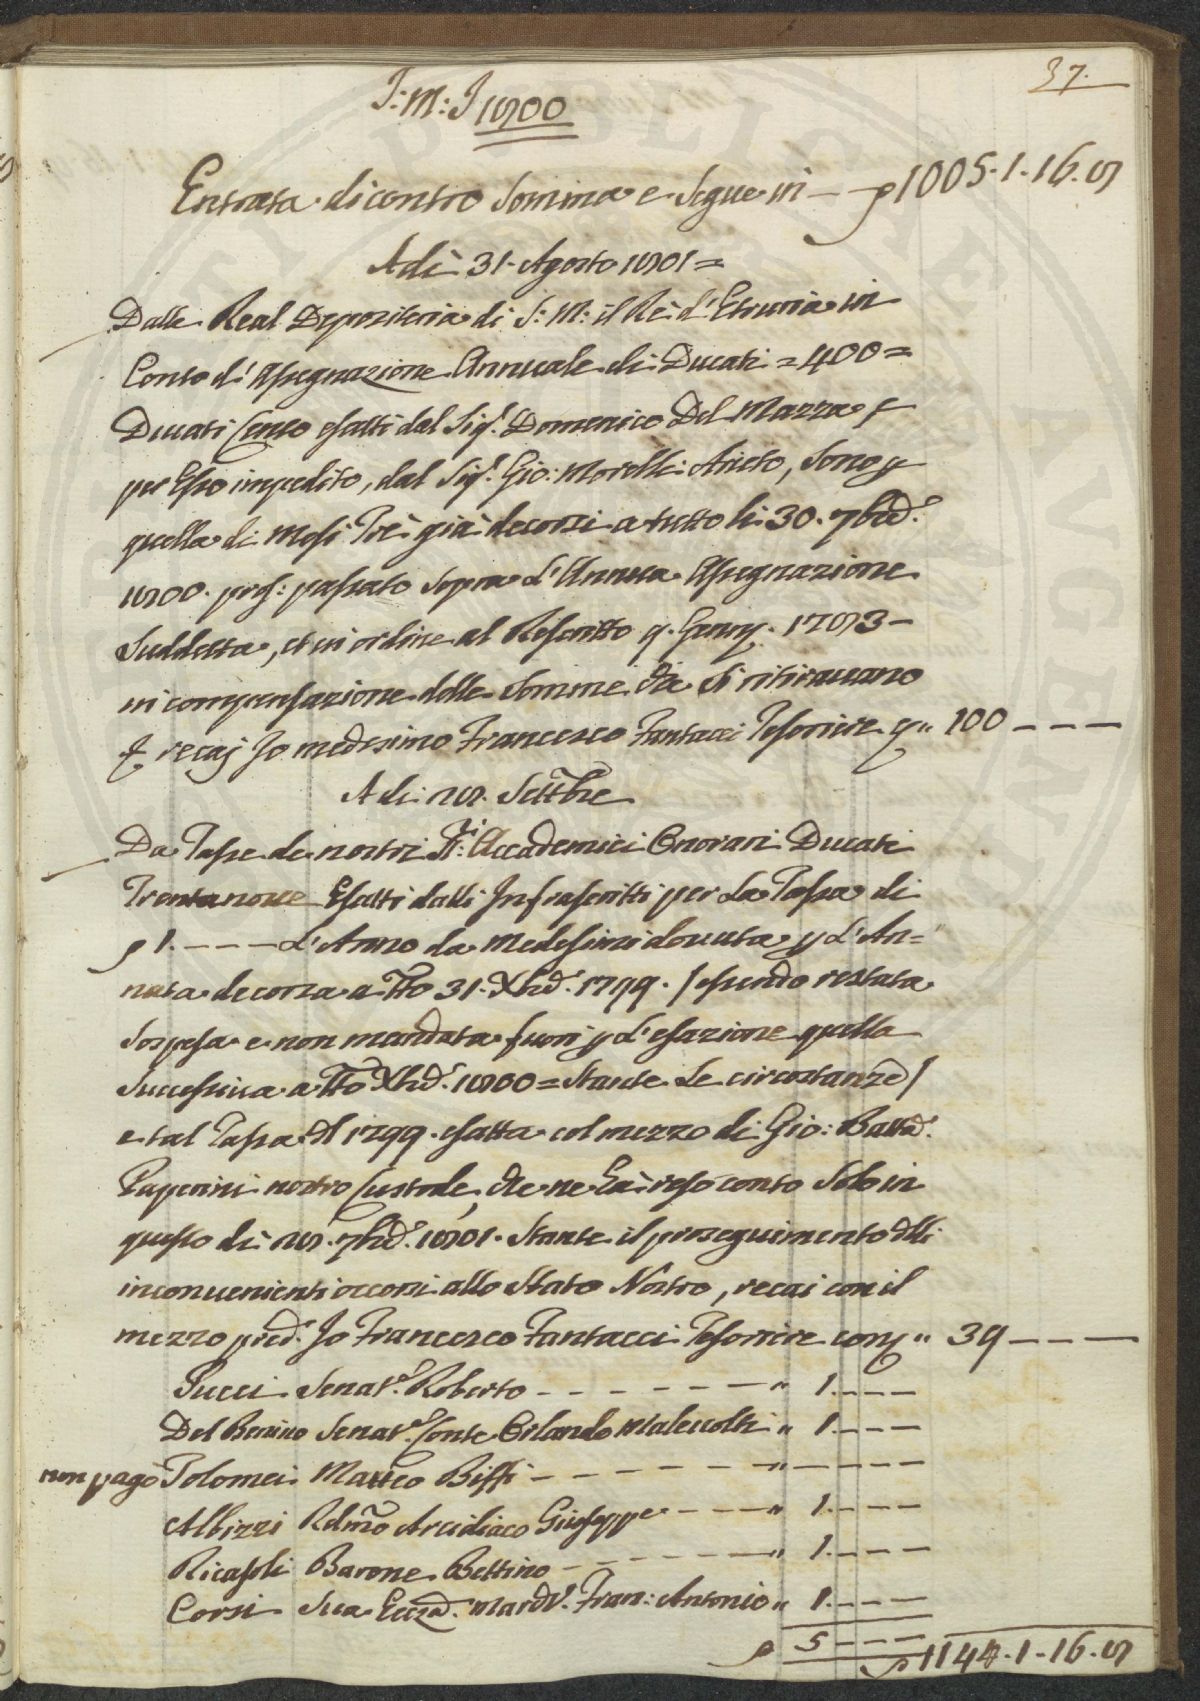 37.
J: M: J 1800
Entrata di contro somma e segue in — ₽ 1005.1.16.8
A dì 31. Agosto 1801 =
Dalla Real Depositeria di S: M: il Rè d'Etruria in
Conto d'Assegnazione Annuale di Ducati = 400 =
Ducati Cento esatti dal Sig.r Domenico Del Mazza, e
per Esso impedito, dal Sig.r Gio: Morelli Aiuto, sono p
quella di Mesi Trè già decorsi a tutto li 30. 7bre.
1800. pros: passato sopra l'Annua Assegnazione
Suddetta, et in ordine al Rescritto 9. Genn. 1783 –
in compensazione delle Somme che si ritiravano
e recai Io medesimo Francesco Fantacci Tesoriere p „ 100 – – –
A di 28. Settbre
Da Tasse de nostri SS.ri Accademici Onorari Ducati
Trentanove Esatti dalli Infrascritti per La Tassa di
₽ 1. – – – – L'Anno da Medesimi dovuta p L'An=
nata decorsa a Tto 31. Xbre. 1799. / essendo restata
Sospesa e non mandata fuori p L'esazione quella
Successiva a Tto Xbre. 1800 = Stante Le circostanze /
e tal Tassa dl 1799. esatta col mezzo di Gio: Batta.
Paperini nostro Custode, che ne hà reso conto Solo in
questo dì 28. 7bre. 1801. Stante il proseguimento dlli
inconvenienti occorsi allo Stato Nostro, recai con il
mezzo pred.o Io Francesco Fantacci Tesoriere con p „ 39 – – –
Pucci Senat.e Roberto – – – – – – „ 1. – – –
Del Benino Senat.e Conte Orlando Malevolti „ 1. – – –
non pagò Tolomei Matteo Biffi – – – – – – „ – – – –
Albizzi Rdmo Arcidiaco Giuseppe – – – „ 1. – – –
Ricasoli Barone Bettino – – – – – – „ 1. – – –
Corsi Sua Eccza. March.e Fran: Antonio „ 1. – – –
₽ 5 – – – ₽ 1144.1.16.8